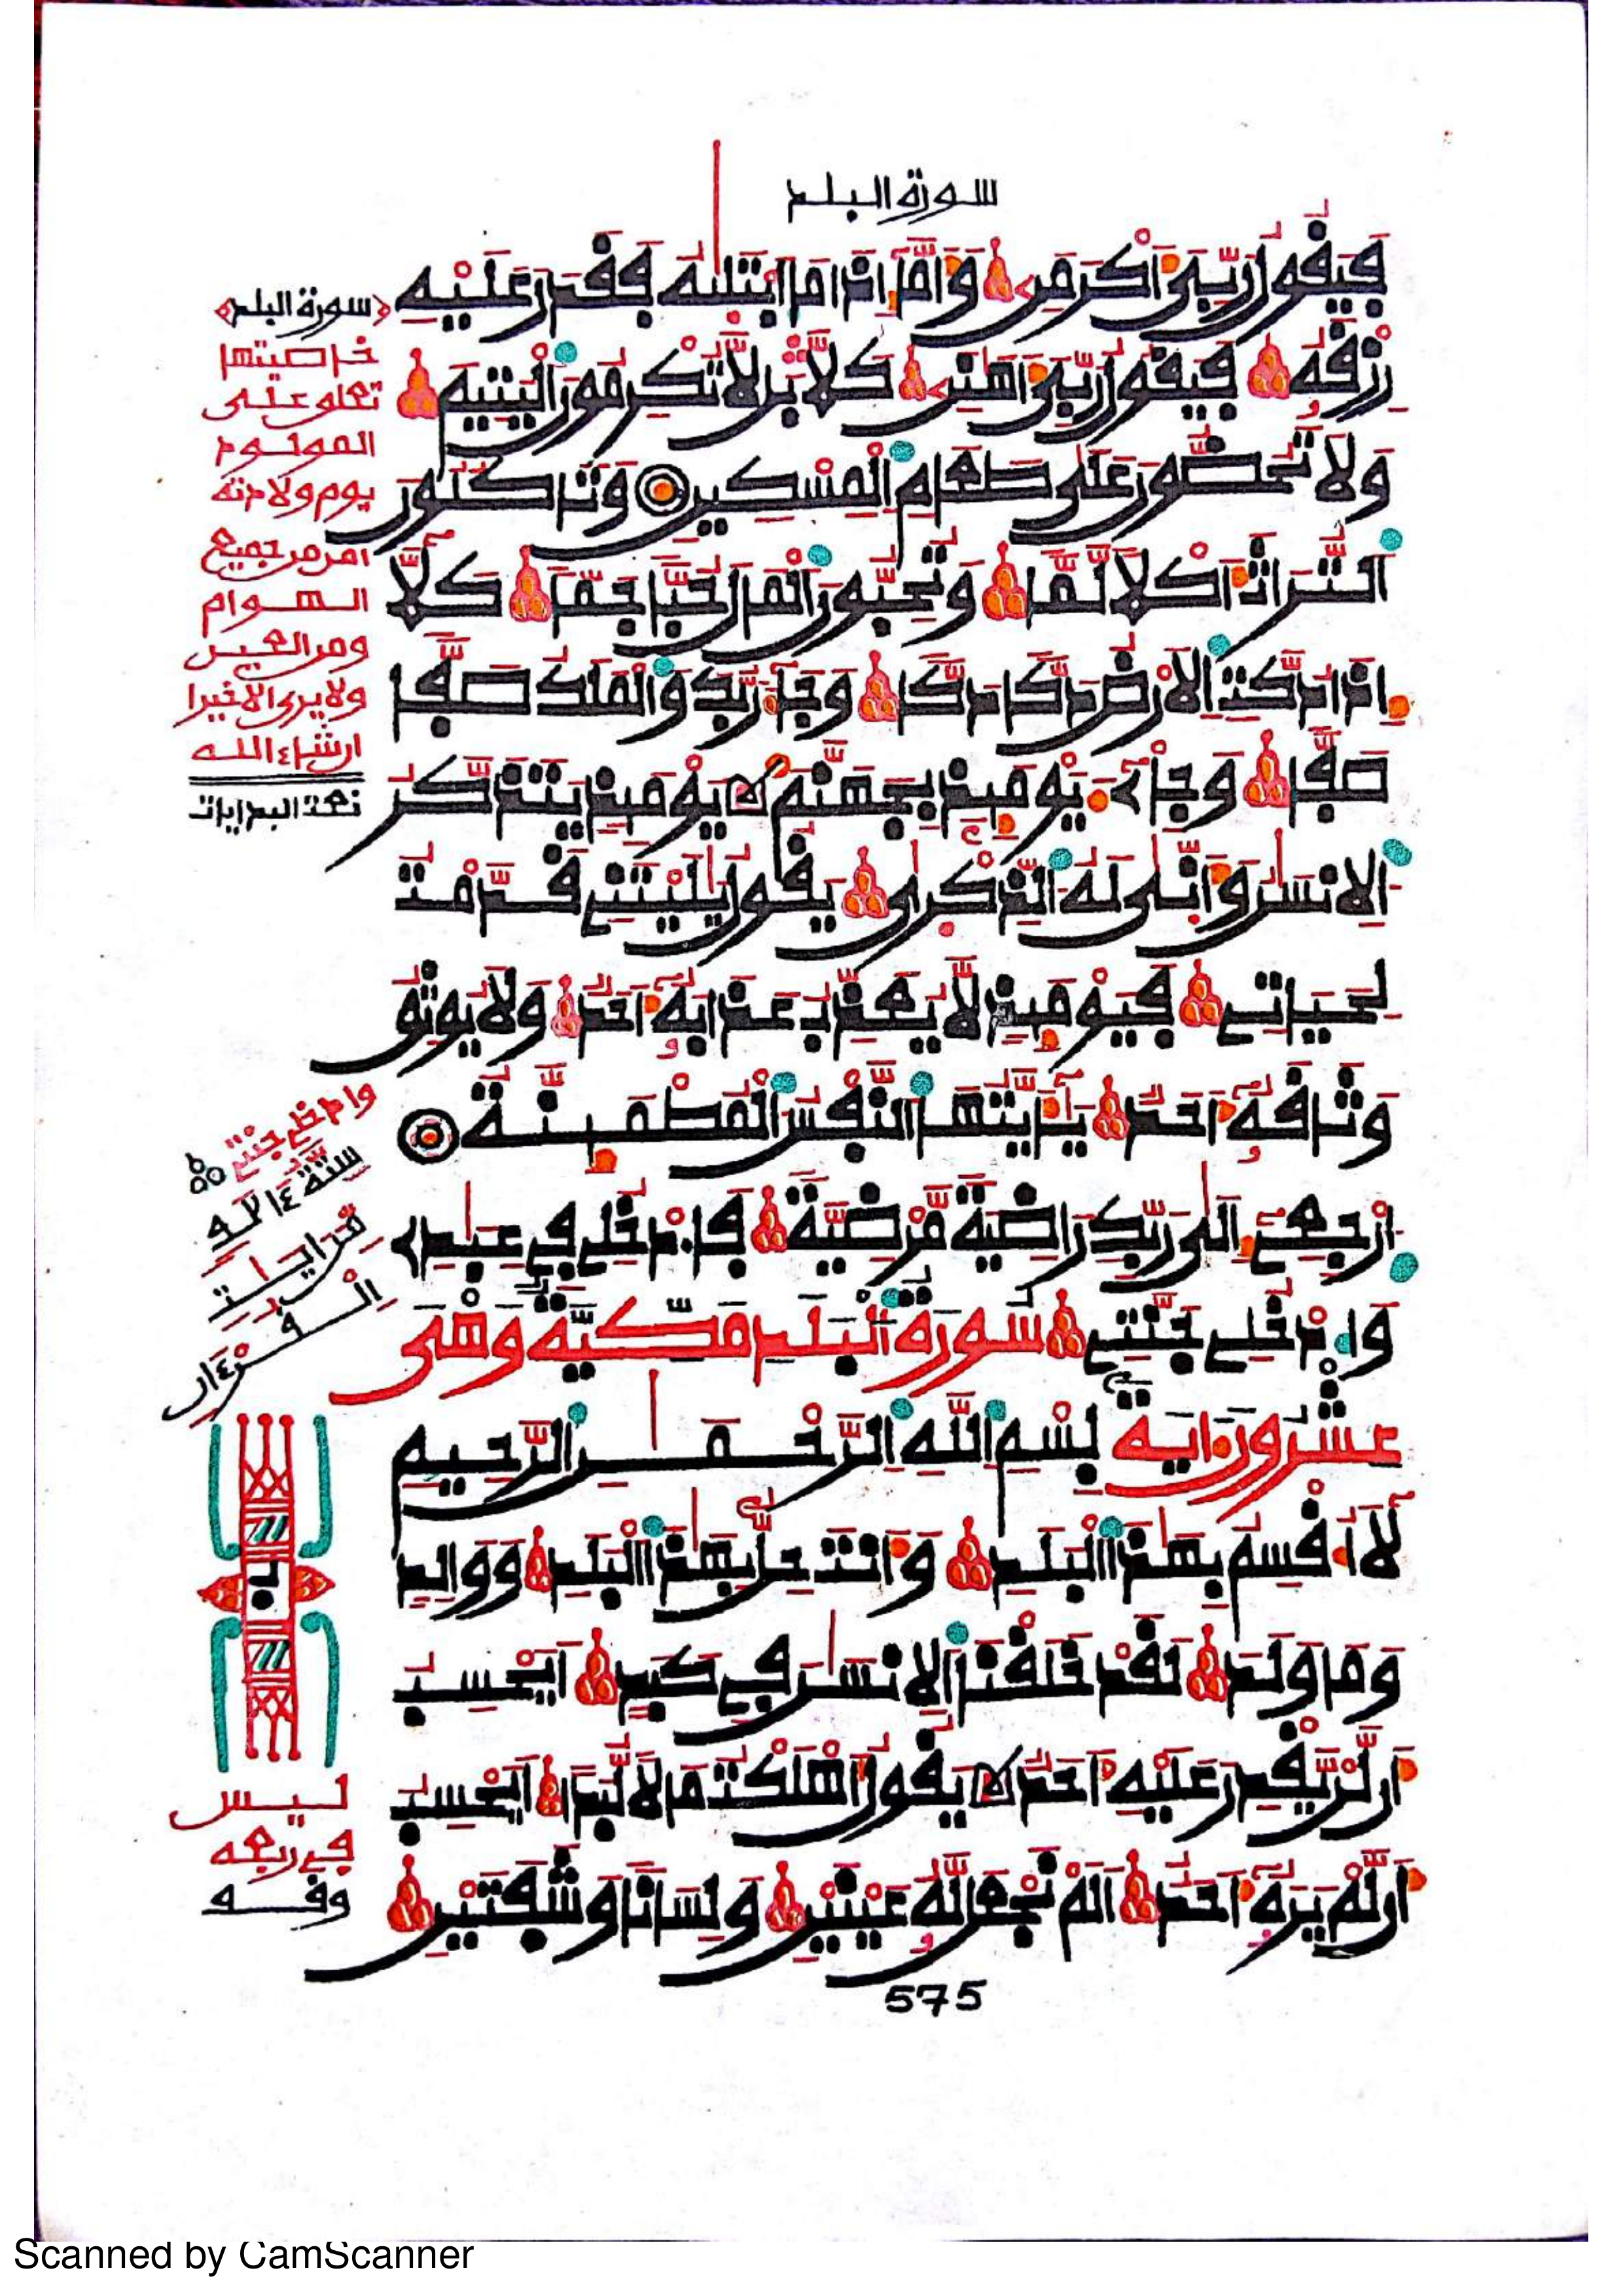 سورة البلد
فَيَقُولُ رَبِّيَ أَكْرَمَنِ وَأَمَّا إِذَا مَا ابْتَلَىٰهُ فَقَدَرَ عَلَيْهِ
رِزْقَهُ فَيَقُولُ رَبِّيَ أَهَٰنَنِ كَلَّا بَل لَّا تُكْرِمُونَ الْيَتِيمَ
وَلَا تَحُضُّونَ عَلَىٰ طَعَامِ الْمِسْكِينِ وَتَاكُلُونَ
التُّرَاثَ أَكْلًا لَّمًّا وَتُحِبُّونَ الْمَالَ حُبًّا جَمًّا كَلَّا
إِذَا دُكَّتِ الْأَرْضُ دَكًّا دَكًّا وَجَآءَ رَبُّكَ وَالْمَلَكُ صَفًّا
صَفًّا وَجِاْيٓءَ يَوْمَئِذٍ بِجَهَنَّمَ يَوْمَئِذٍ يَتَذَكَّرُ
الْإِنسَٰنُ وَأَنَّىٰ لَهُ الذِّكْرَىٰ يَقُولُ يَٰلَيْتَنِي قَدَّمْتُ
لِحَيَاتِي فَيَوْمَئِذٍ لَّا يُعَذِّبُ عَذَابَهُ أَحَدٌ وَلَا يُوثِقُ
وَثَاقَهُ أَحَدٌ يَٰٓأَيَّتُهَا النَّفْسُ الْمُطْمَئِنَّةُ
ارْجِعِي إِلَىٰ رَبِّكِ رَاضِيَةً مَّرْضِيَّةً فَادْخُلِي فِي عِبَٰدِي
وَادْخُلِي جَنَّتِي سورة البلد مكية وهي
عشرون ءاية بِسْمِ اللَّهِ الرَّحْمَٰنِ الرَّحِيمِ
لَآ أُقْسِمُ بِهَٰذَا الْبَلَدِ وَأَنتَ حِلٌّ بِهَٰذَا الْبَلَدِ وَوَالِدٍ
وَمَا وَلَدَ لَقَدْ خَلَقْنَا الْإِنسَٰنَ فِي كَبَدٍ أَيَحْسِبُ
أَن لَّن يَّقْدِرَ عَلَيْهِ أَحَدٌ يَقُولُ أَهْلَكْتُ مَالًا لُّبَدًا أَيَحْسِبُ
أَن لَّمْ يَرَهُ أَحَدٌ أَلَمْ نَجْعَل لَّهُ عَيْنَيْنِ وَلِسَانًا وَشَفَتَيْنِ
575
سورة البلد
خاصيتها
تتلو على
المولود
يوم ولادته
امن من جميع
الهوام
ومن العين
ولا يرى الا خيرا
ان شاء الله
وادخلي جنتي
ليس
في ربعه
وقف
Scanned by CamScanner